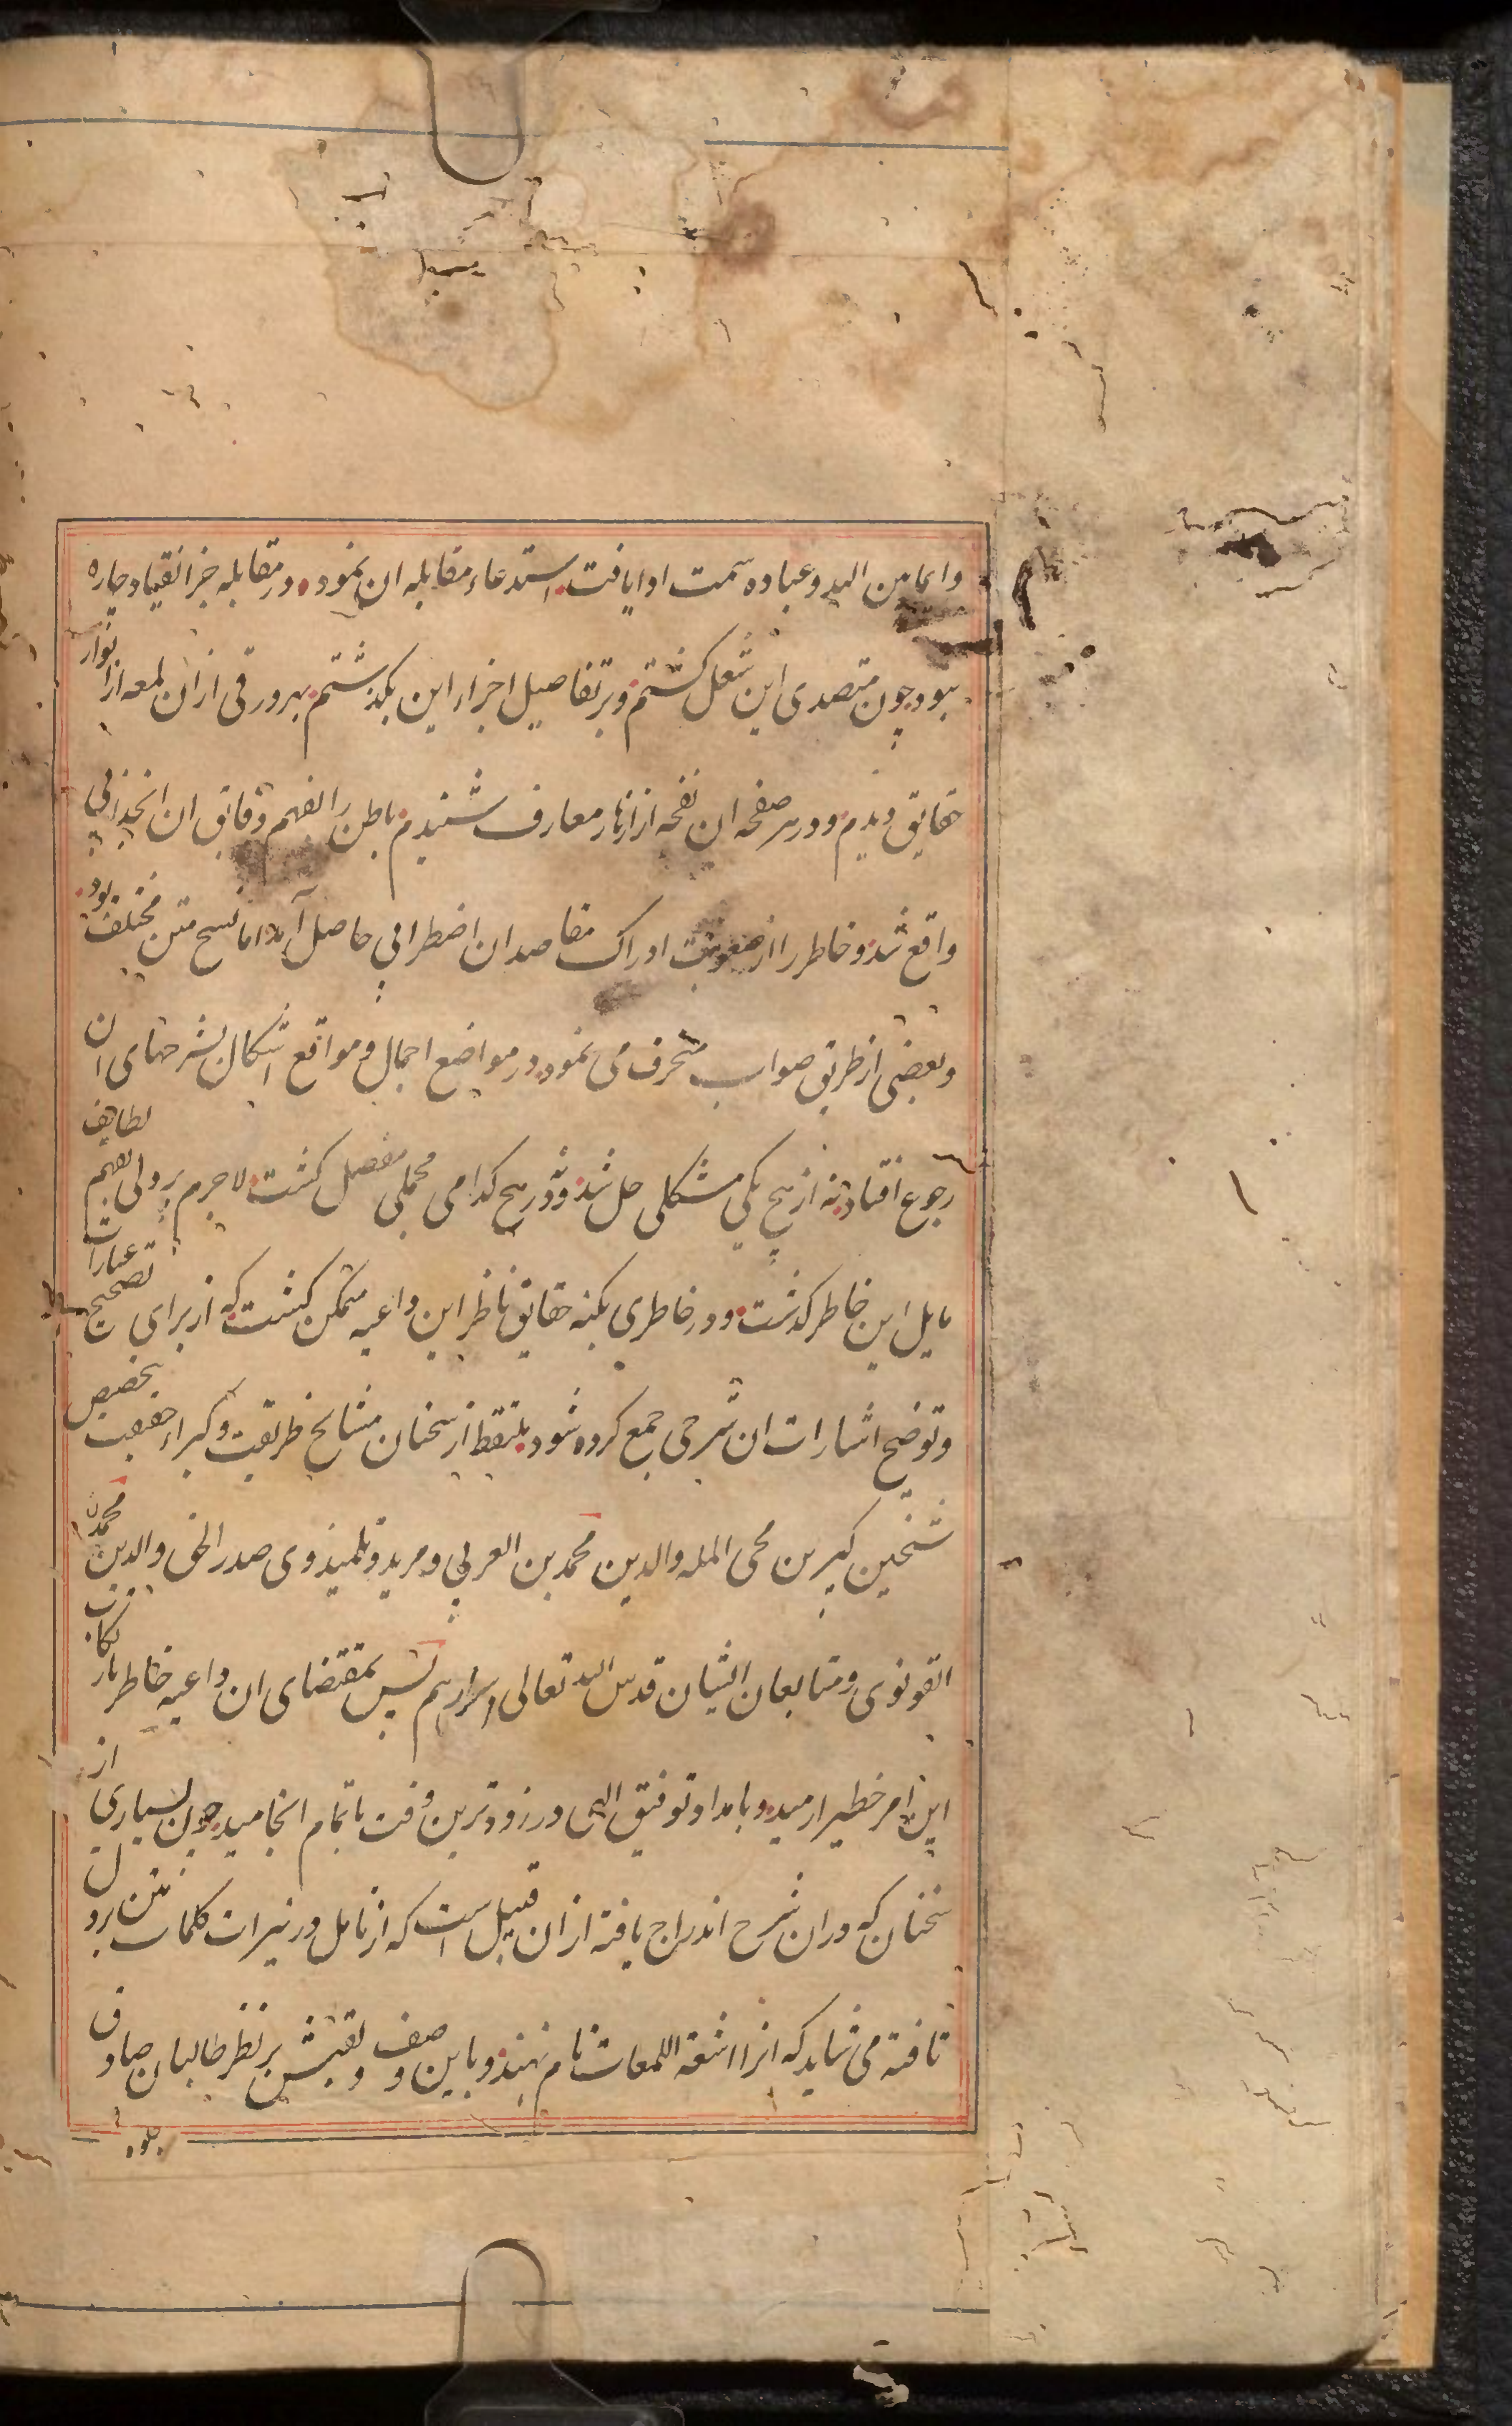 وایما من الید وعباده سمت اوا یافت استدعاء مقابله ان نمود در مقابله جز انقیاد چاره
نبود چون متصدی این شغل کشتم و بر تفاصیل اجزاء این بکذشتم بهر ورقی از ان لمعه از انوار
حقایق دیدم و در هر صفحه ان نفحه از ازهار معارف شنیدم باطن را بفهم دقایق ان انجذابی
واقع شد و خاطر را از صعوبت ادراک مقاصد ان اضطرابی حاصل آمد اما نسخ متن مختلف بود
وبعضی از طریق صواب منحرف می نمود در مواضع اجمال و مواقع اشکال بشرحهای ان
رجوع افتاد نه از هیچ یکی مشکلی حل شد و نه در هیچ کدامی مجملی مفصل کشت لاجرم بر دلی بفهم لطایف
مایل این خاطر کذشت و در خاطری بکنه حقایق ناظر این داعیه متمکن کشت که از برای تصحیح عبارات
وتوضیح اشارات ان شرحی جمع کرده شود ملتقط از سخنان مشایخ طریقت و کبراء حقیقت بتخصیص
شیخین کبیرین محی المله والدین محمد بن العربی و مرید و تلمیذ وی صدر الحق والدین محمد
القونوی ومتابعان ایشان قدس الله تعالی اسرارهم پس بمقتضای ان داعیه خاطر بار تکاب
این امر خطیر ارمید و بامداد توفیق الهی در زودترین وقت باتمام انجامید چون بسیاری از
سخنان که در ان شرح اندراج یافته از ان قبیل است که از تامل در نیرات کلمات متن بر دل
تافته می شاید که انرا اشعة اللمعات نام نهند و باین وصف و لقبش بر نظر طالبان صادق
جلوه